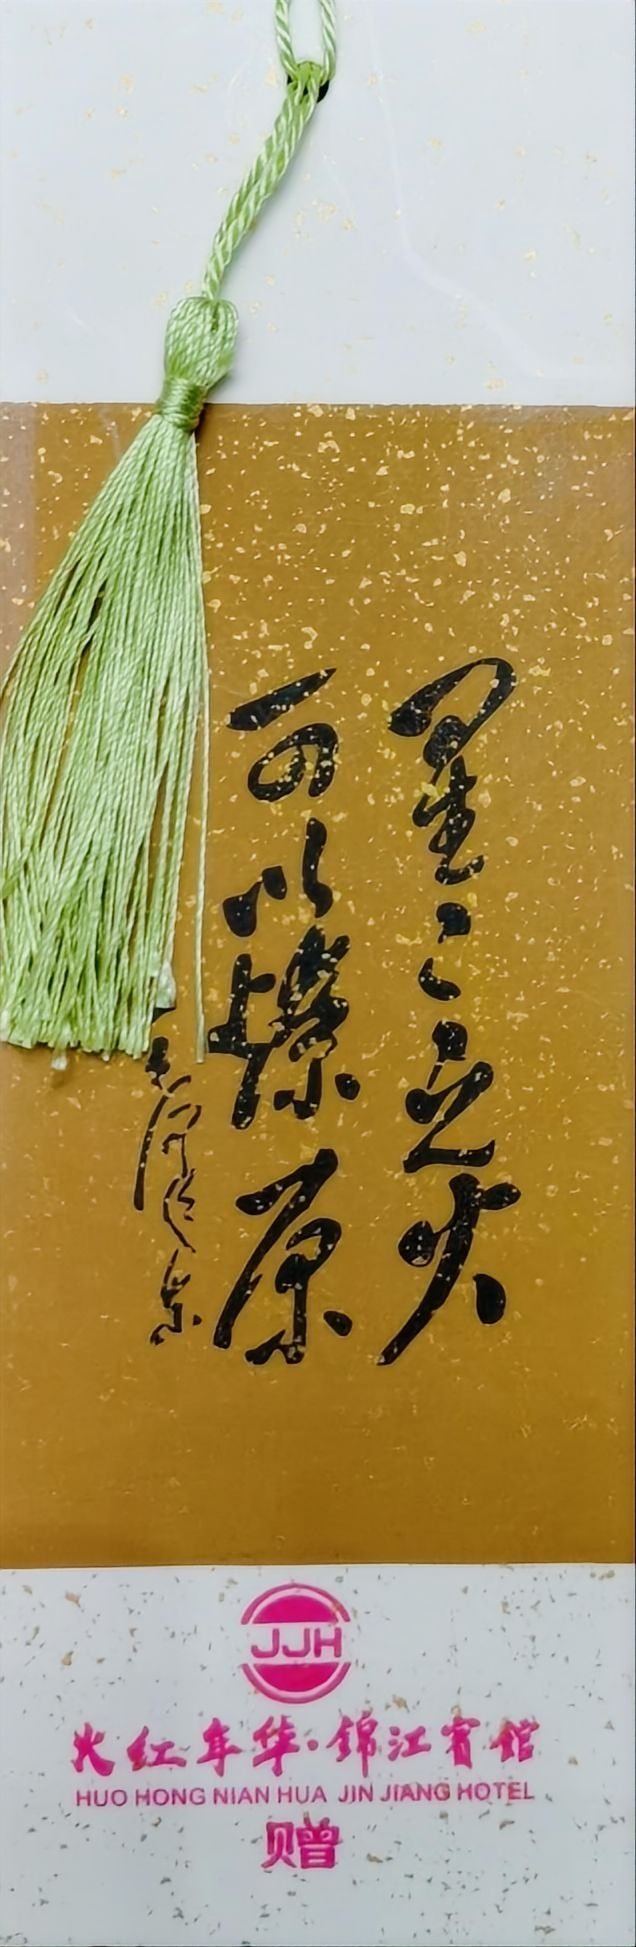 星々之火
可以燎原
毛泽东
JJH
火红年华·锦江宾馆
HUO HONG NIAN HUA JIN JIANG HOTEL
赠